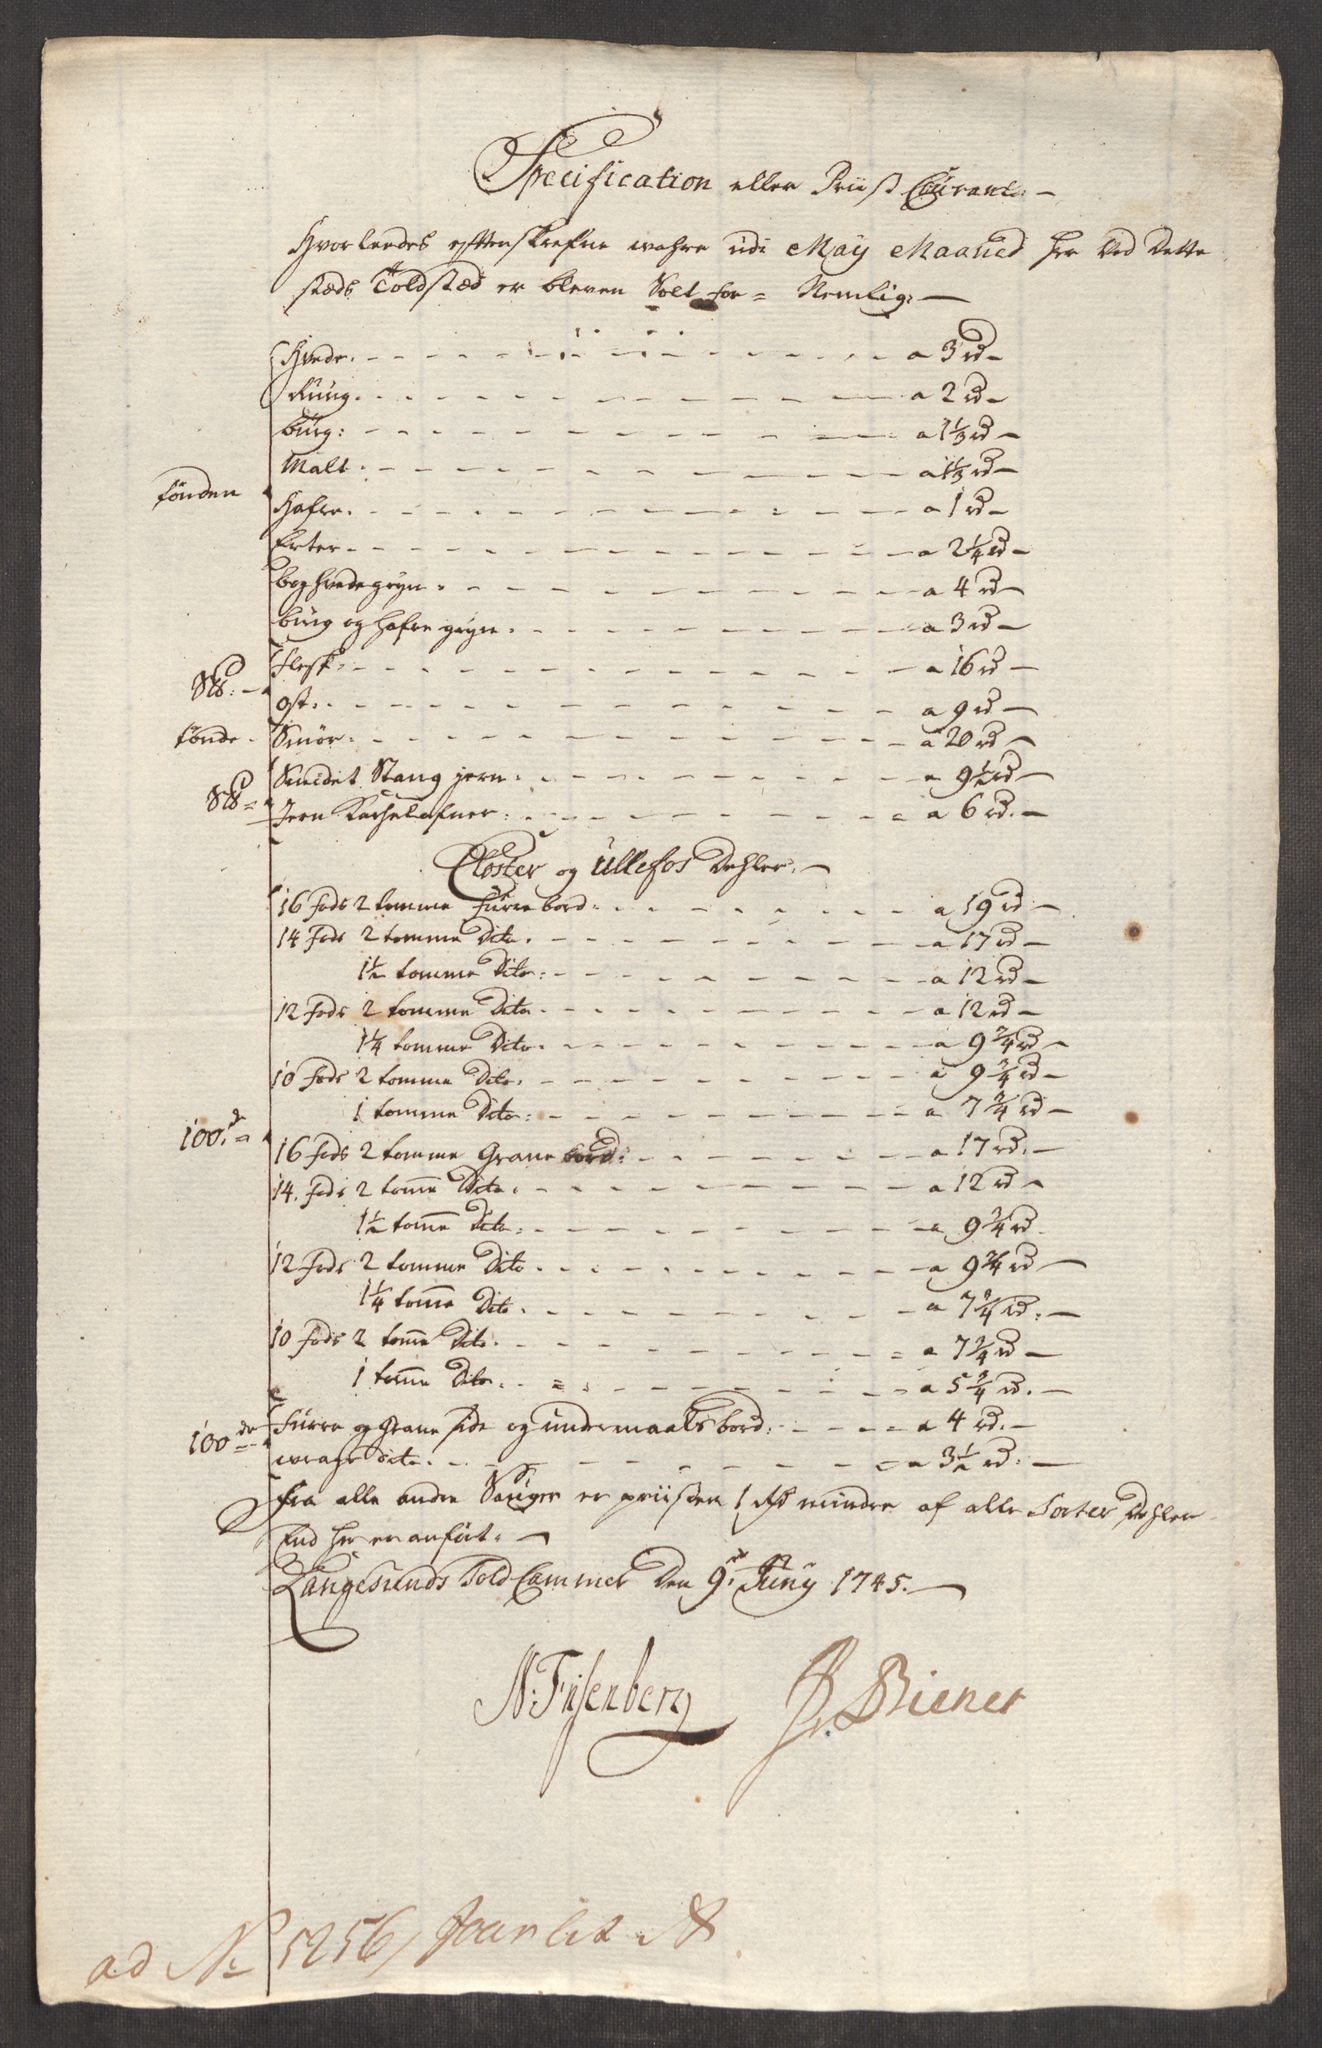 Specification eller Priis Courant:
Hvorleedes efterskrefne wahre udi May Maaned her ved dette
stæds Toldstæd er bleven Solt for = Nemlig:
Hvede. a 3 rd
Rúug. a 2 rd
búg: a 1 1/3 rd
Malt. a 1 1/3 rd
tönden
Hafre. a 1 rd
Erter. a 2 1/4 rd
boghvedegryn. a 4 rd
búg og hafre gryn. a 3 rd
Flesk. a 16 rd
S℔:
Ost. a 9 rd
tönde. Smör. a 20 rd
Smidet Stang jern. a 9 1/2 rd
S℔ =
Jern Kachelofner. a 6 rd.
Closter og Ullefos Dehler.
16 fods 2 tomme fúrre bord. a 19 rd.
14 fods 2 tomme Dito. a 17 rd
1 1/2 tomme Dito: a 12 rd
12 fods 2 tomme Dito. a 12 rd
1 1/4 tomme Dito. a 9 3/4 rd
10 fods 2 tomme Dito. a 9 3/4 rd
1 tomme Dito: a 7 3/4 rd
100de
16 fods 2 tomme Grane bord: a 17 rd.
14. fods 2 tome Dito. a 12 rd
1 1/2 tome Dito. a 9 3/4 rd.
12 fods 2 tomme Dito. a 9 3/4 rd
1 1/4 tome Dito. a 7 3/4 rd.
10 fods 2 tome Dito. a 7 3/4 rd
1 tome Dito. a 5 3/4 rd.
100de fúrre og grane side og undermaals bord. a 4 rd.
wrage dito. a 3 1/2 rd.
Fra alle andre Sauger er priisen 1 rd mindre af alle Sorter Dehler
End her er anfört.
Langesunds Told Cammer Den 9de Júny 1745.
N: Fisenberg Biener
ad No 5256/ Joar lit A